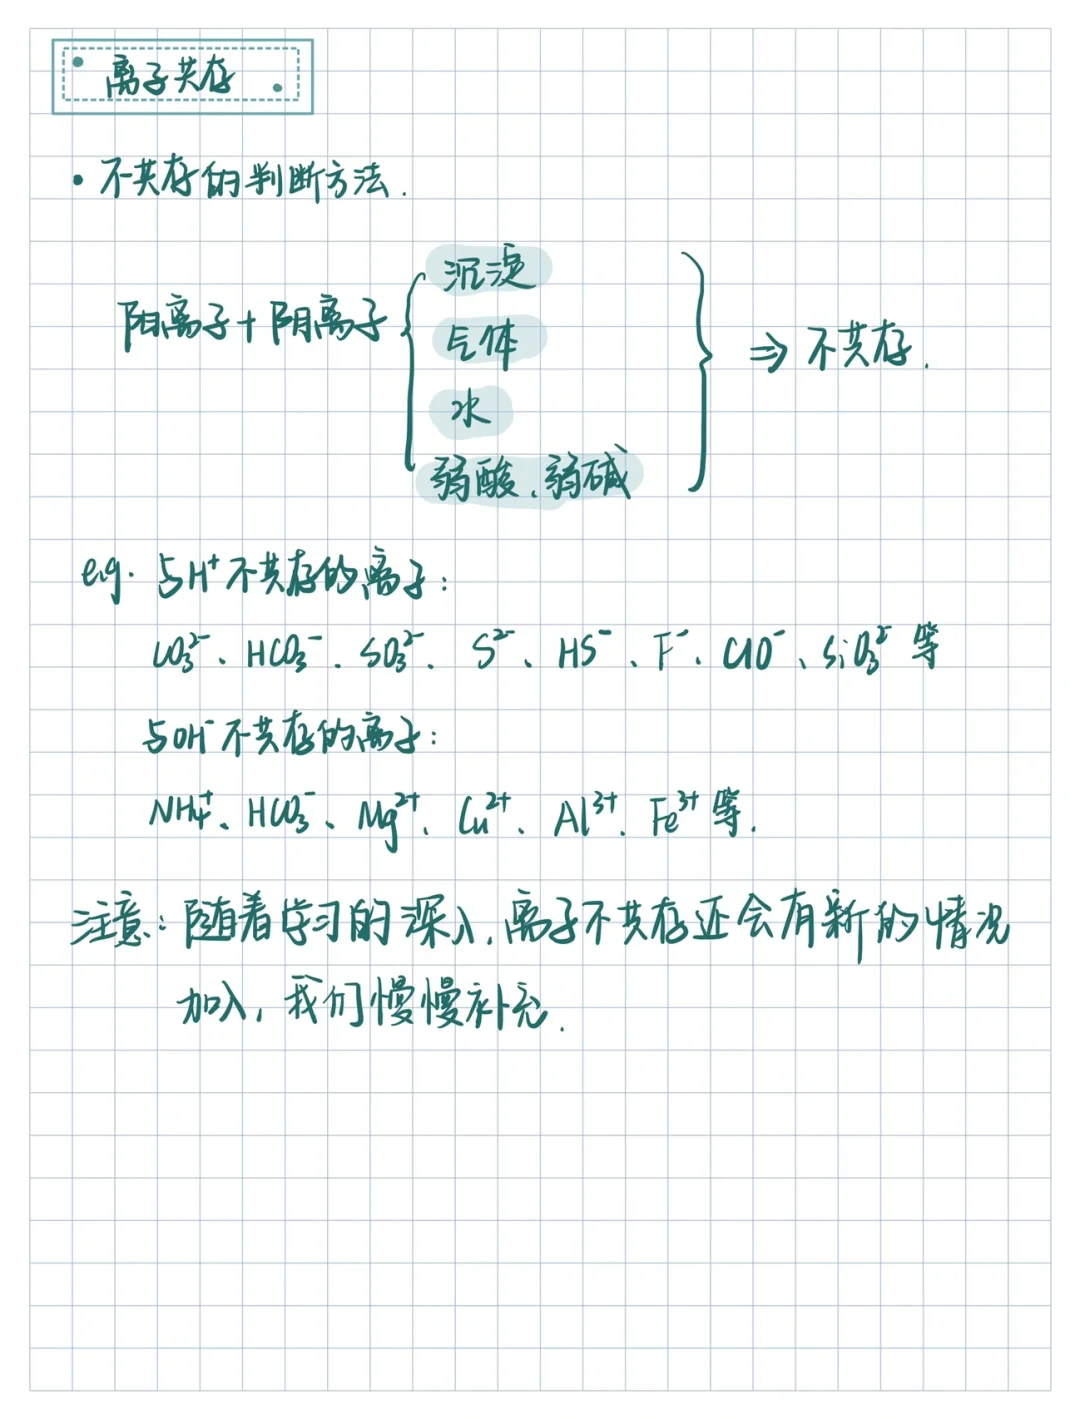 离子共存
· 不共存的判断方法.
阳离子 + 阴离子 { 沉淀 气体 水 弱酸、弱碱 } ⇒ 不共存.
e.g. 与H⁺不共存的离子:
CO₃²⁻、HCO₃⁻、SO₃²⁻、S²⁻、HS⁻、F⁻、ClO⁻、SiO₃²⁻ 等
与OH⁻不共存的离子:
NH₄⁺、HCO₃⁻、Mg²⁺、Cu²⁺、Al³⁺、Fe³⁺ 等.
注意: 随着学习的深入, 离子不共存还会有新的情况
加入, 我们慢慢补充.